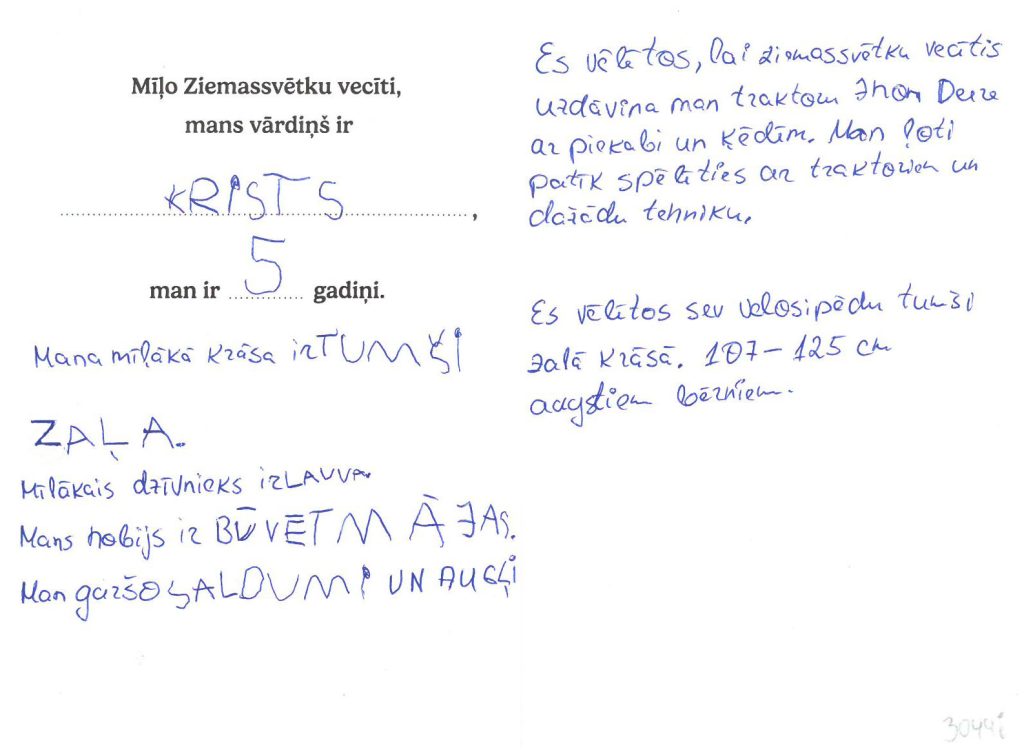 Mīļo Ziemassvētku vecīti,
mans vārdiņš ir
KRISTS,
man ir 5 gadiņi.
Mana mīļākā krāsa ir TUMŠI
ZAĻA.
Mīlākais dzīvnieks ir LAUVA.
Mans hobijs ir BŪVĒT MĀJAS.
Man garšo SALDUMI UN AUGĻI
Es vēlētos, lai ziemassvētku vecītis
uzdāvina man traktoru Jhon Deere
ar piekabi un ķēdēm. Man ļoti
patīk spēlēties ar traktoriem un
dažādu tehniku.
Es vēlētos sev velosipēdu tumši
zalā krāsā. 107-125 cm
augstiem bērniem.
3044i